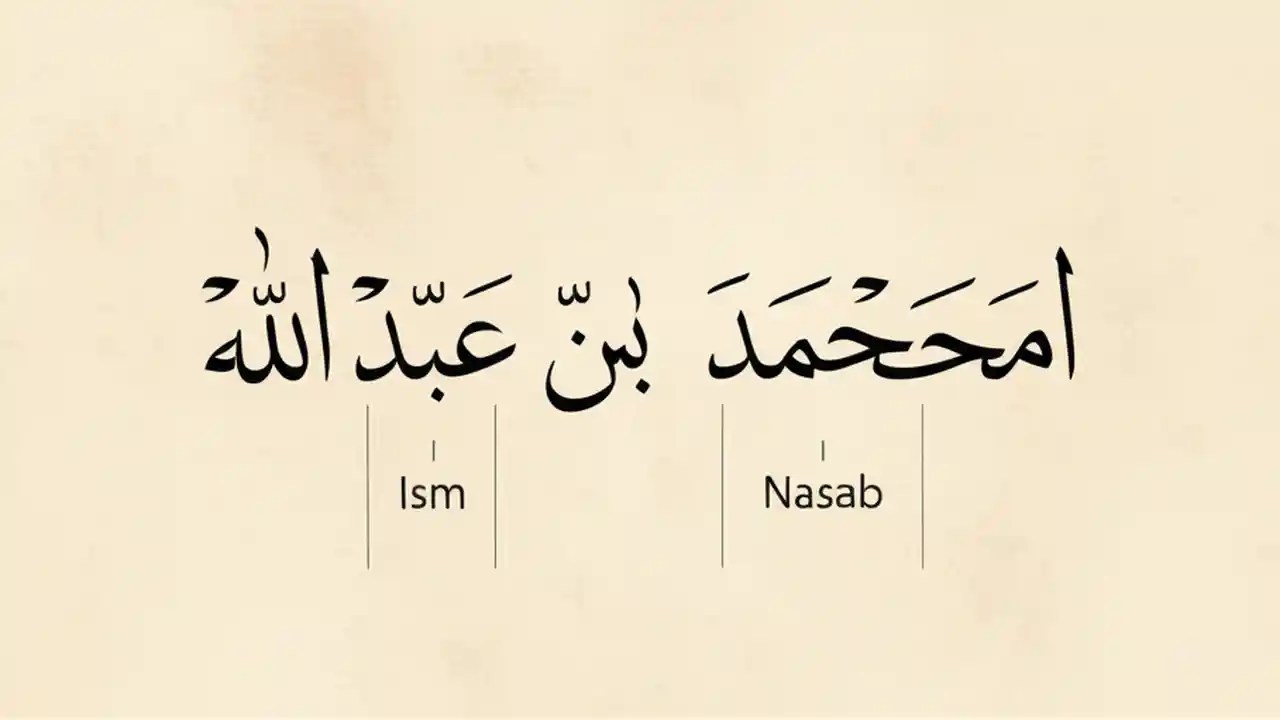 امَحَحْمَدَ بنّ عَبّدْ اللّهْ
Ism Nasab